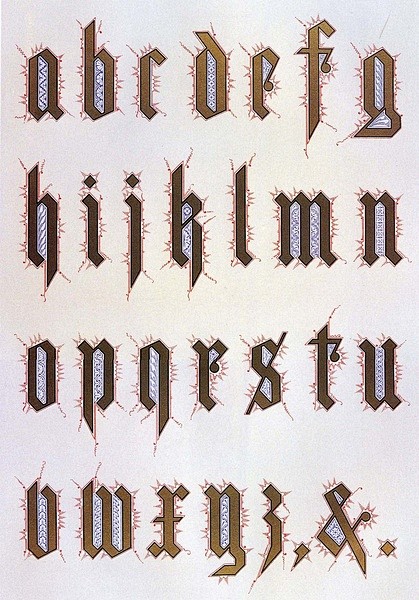 a b c d e f g
h i j k l m n
o p q r s t u
v w x y z , & .